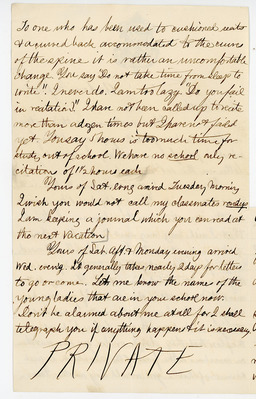 To one who has been used to cushioned seats
& a curved back accommodated to the curves
of the spine it is rather an uncomfortable
change. You say "Do not take time from sleep to
write"! I never do. I am too lazy. "Do you fail
in recitation?" I have not been called up to recite
more than a dozen times but I have not failed
yet. You say 5 hours is too much time for
study out of school. We have no school only re-
citation of 1½ hours each
Yours of Sat. long arrived Tuesday Morning
I wish you would not call my classmates
I am keeping a journal which you can read at
the next vacation
Yours of Sab. Aft. & Monday evening arrived
Wed. evening. It generally takes nearly 2 days for letters
to go or come. Let me know the names of the
young ladies that are in your school now.
Don't be alarmed about me at all for I shall
telegraph you if anything happens & it is necessary
PRIVATE